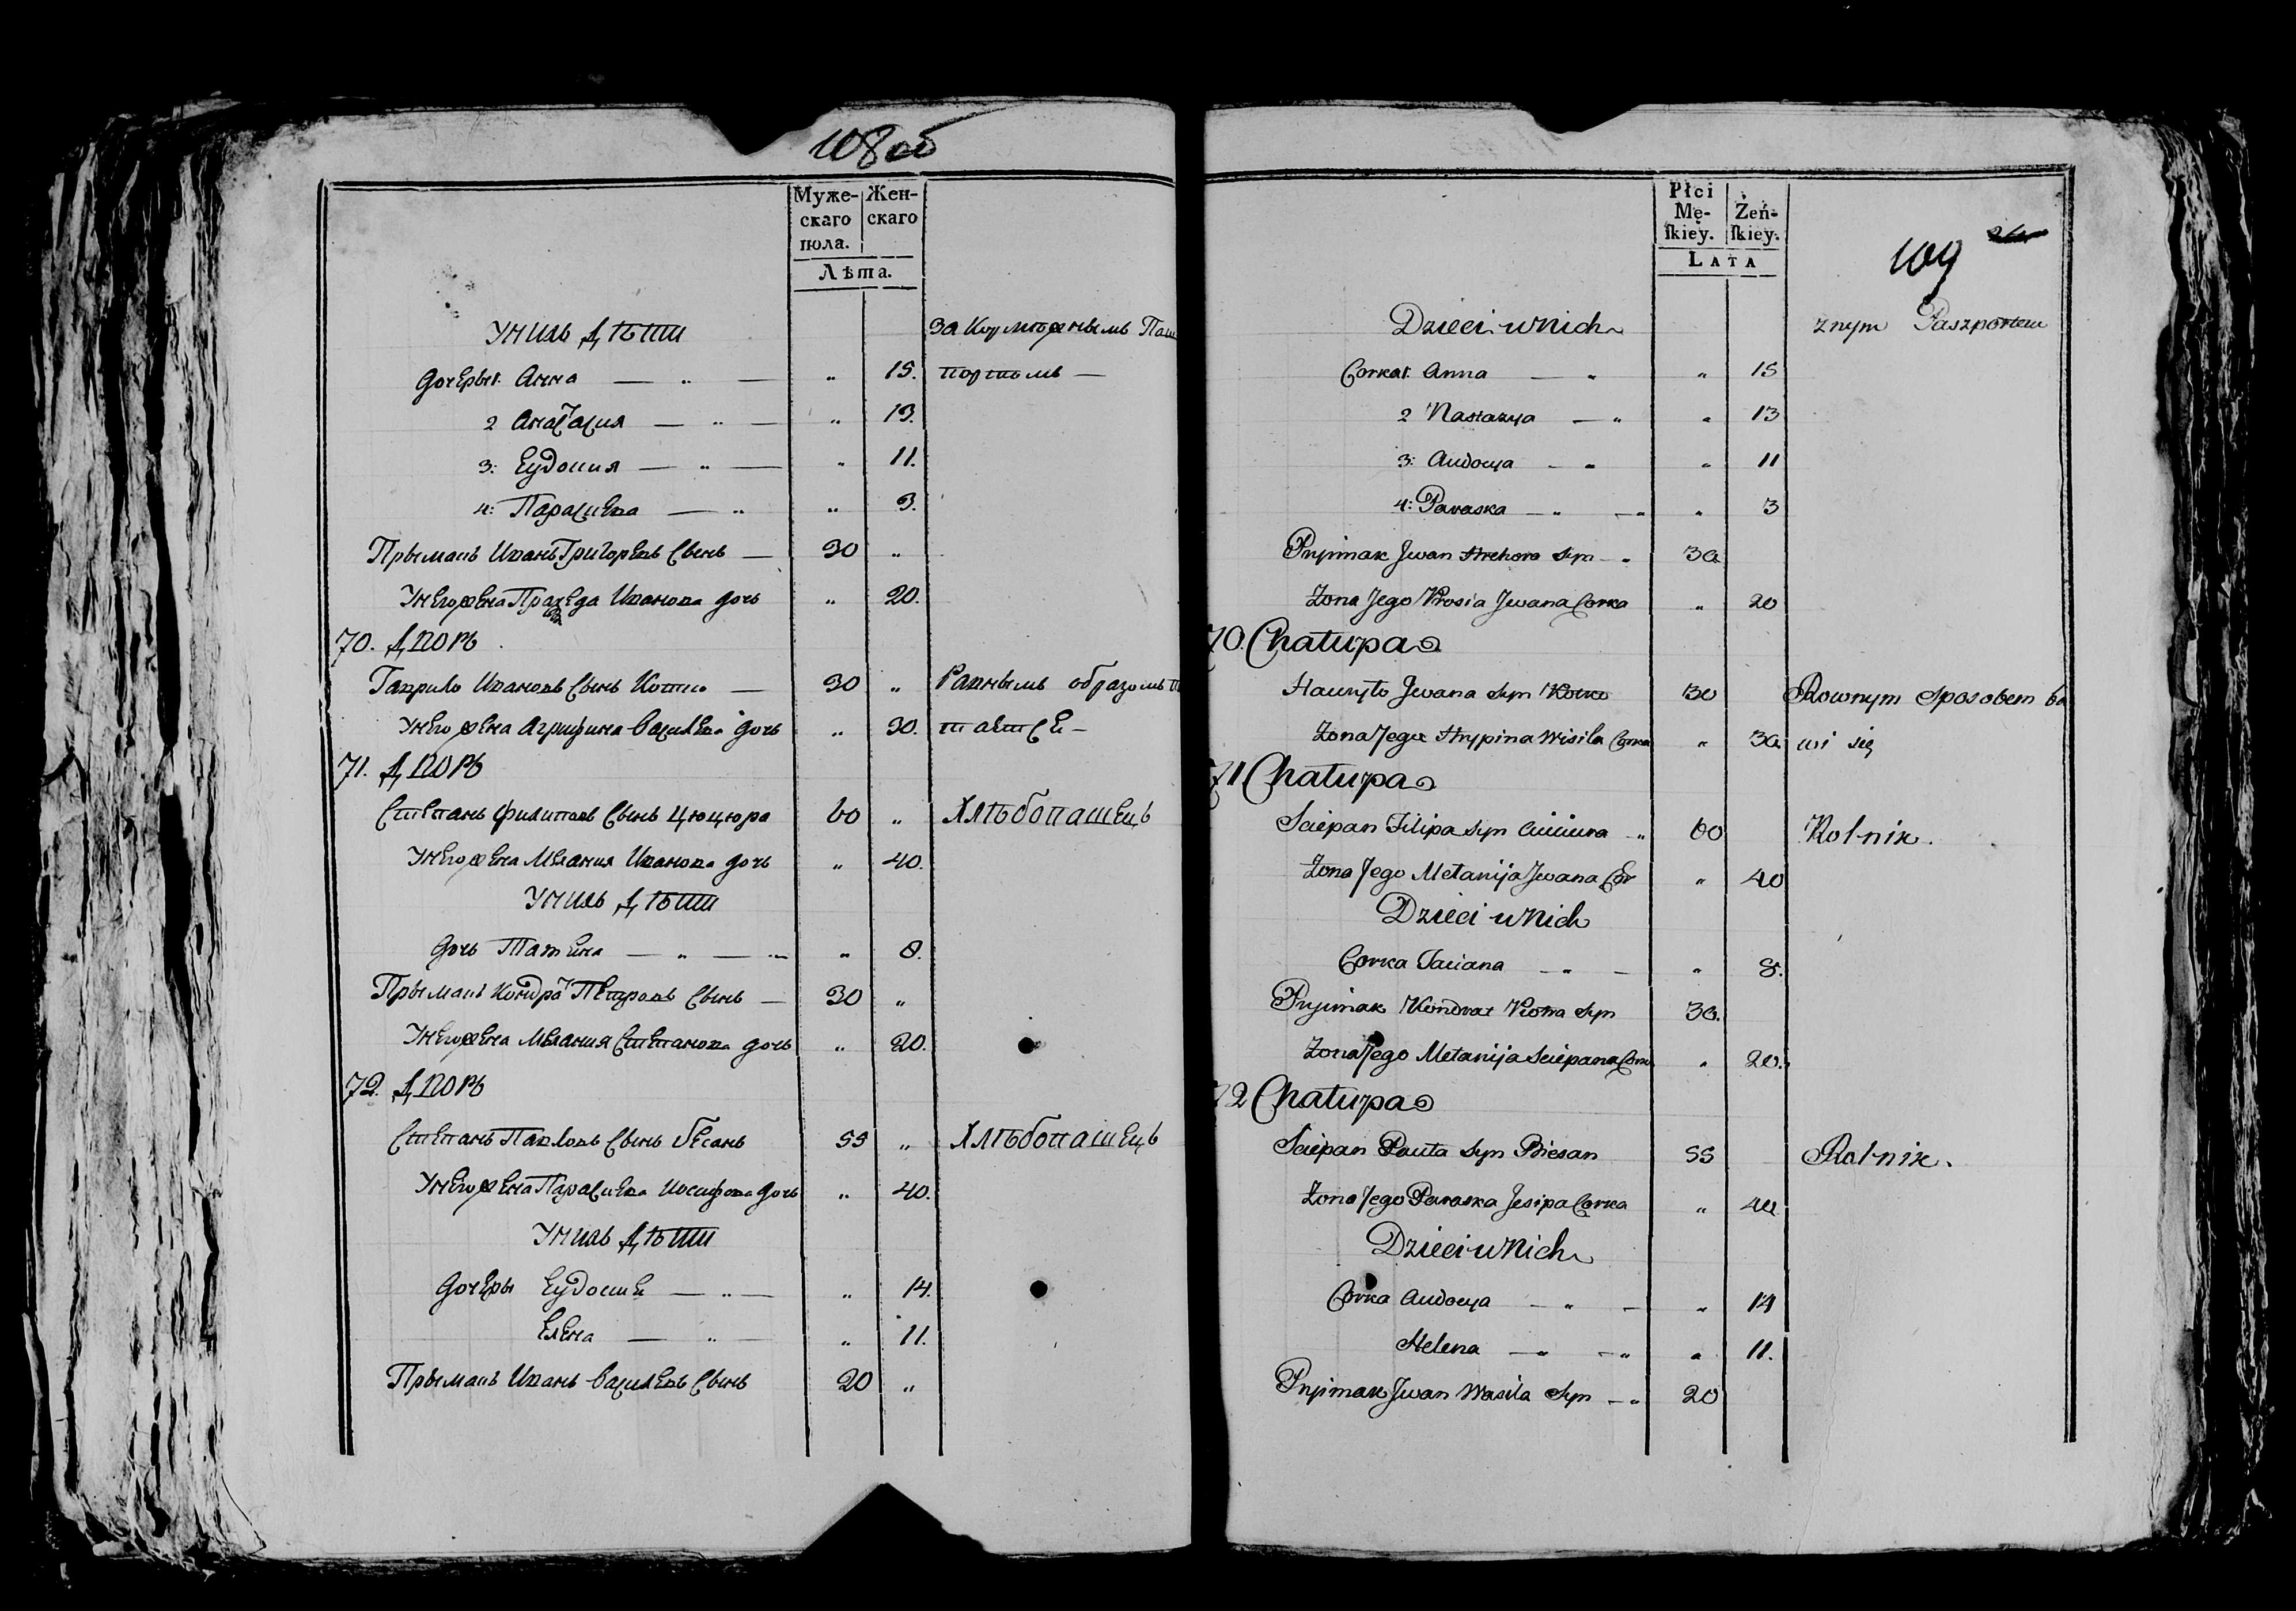 108об
Муже-
скаго
пола.
Жен-
скаго
Лѣта.
У нихъ Дѣти
за Кормежнымъ Паш
Дочеры: 1. Анна — „ — „ 15. портомъ —
2 Анастасия — „ — „ 13.
3: Еудокия — „ — „ 11.
4: Параскева — „ „ 3.
Прымакъ Иванъ Григоревъ Сынъ — 30 „
У него жена Иванова дочь „ 20.
70. Дворъ
Гаврило Ивановъ Сынъ Котко — 30 „ Равнымъ образомъ
У него жена Агрифина Васильева дочь „ 30. таетсе —
71. Дворъ
Степанъ Филиповъ Сынъ Цюцюра 60 „ Хлѣбопашецъ
У него жена Мелания Иванова дочь „ 40.
У нихъ Дѣти
Дочь Татяна — „ — „ „ 8.
Прымакъ Кондрат Петровъ Сынъ — 30 „
У него жена Мелания Степанова дочь „ 20.
72. Дворъ
Степанъ Павловъ Сынъ Бесанъ 55 „ Хлѣбопашецъ
У него жена Параскева Иосифова дочь „ 40.
У нихъ Дѣти
Дочеры Еудокие — „ — „ 14.
Елена — „ — „ 11.
Прымакъ Иванъ Васильевъ Сынъ 20 „
Płci
Mę-
ſkiey.
Żeń-
ſkiey.
LATA
109
Dzieci w Nich
znym Paszportem
Corka 1. Anna — „ „ 15
2 Nastazya — „ „ 13
3: Audocya — „ „ 11
4: Paraska — „ — „ „ 3
Pryimak Jwan Hrehora Syn — „ 30.
Żona Jego Prosia Jwana Corka „ 20
70. Chałupa
Hauryło Jwana Syn Kotko 30 Rownym Sposobem ba
Żona Jego Hrypina Wasila Corka „ 30. wi się
71 Chałupa
Sciepan Filipa Syn Ciuciura „ 60 Rolnik.
Żona Jego Mełanija Jwana Cor „ 40
Dzieci w Nich
Corka Taciana — „ — „ 8.
Pryimak Kondrat Piotra Syn 30.
Żona Jego Mełanija Sciepana Corka „ 20.
72 Chałupa
Sciepan Pauła Syn Biesan 55 Rolnik.
Żona Jego Paraska Jesipa Corka „ 40.
Dzieci w Nich
Corka Audocya — „ — „ 14
Helena — „ — „ „ 11.
Pryimak Jwan Wasila Syn — „ 20